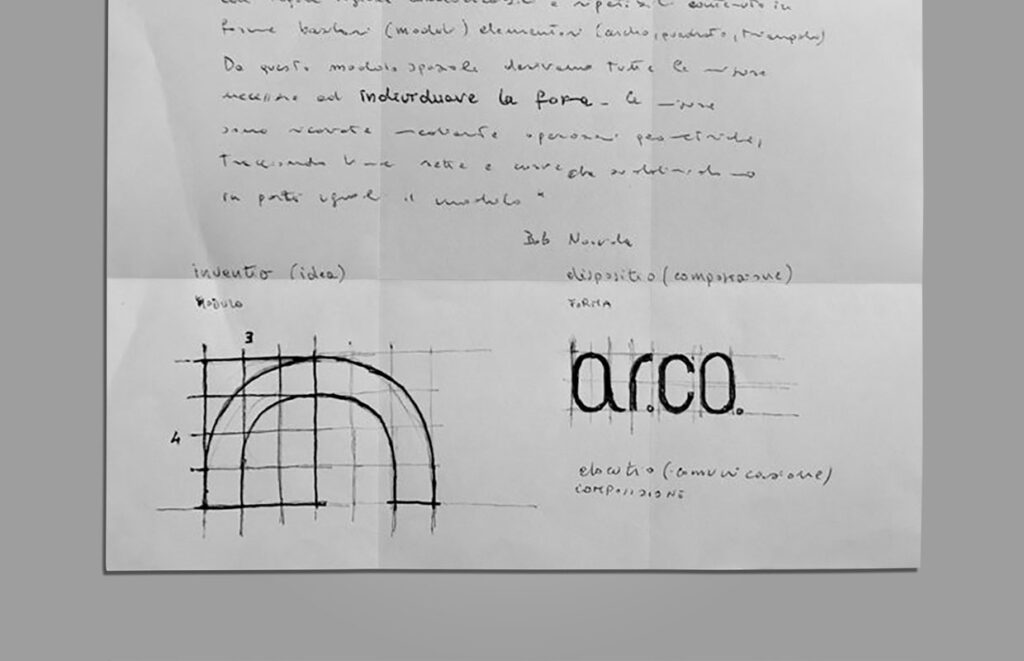 forme basilari (moduli) elementari (arco, quadrato, triangolo)
Da questo modulo spaziale deriviamo tutte le misure
necessarie ad individuare la forma. le misure
sono ricavate mediante operazioni geometriche,
tracciando linee rette e curve che suddividono
in parti uguali il modulo"
Bob Noorda
inventio (idea)
MODULO
3
4
dispositio (composizione)
FORMA
ar.co.
elocutio (comunicazione)
COMPOSIZIONE